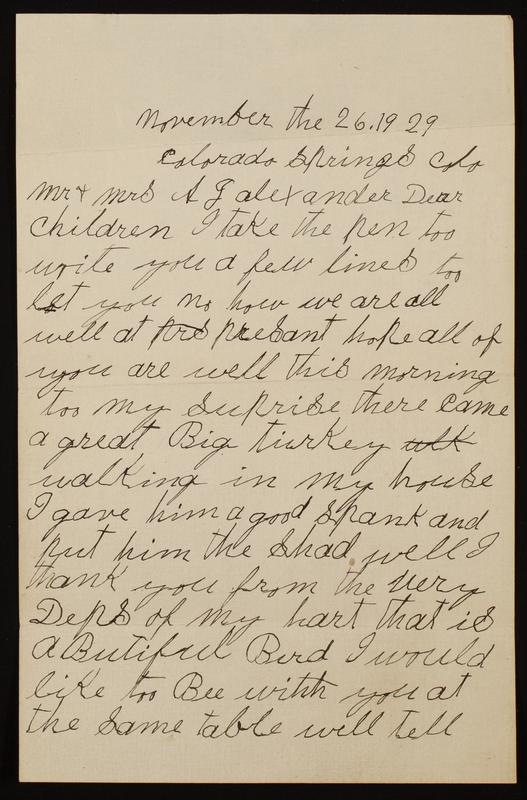 november the 26.19 29
Colorado Springs Colo
mr & mrs A J alexander Dear
children I take the pen too
write you a few lines too
let you no how we are all
well at prs presant hope all of
you are well this morning
too my suprise there came
a great Big turkey
walking in my house
I gave him a good spank and
put him the shad well I
thank you from the very
Deps of my hart that is
a Butiful Bird I would
like too Bee withh you at
the same table will tell